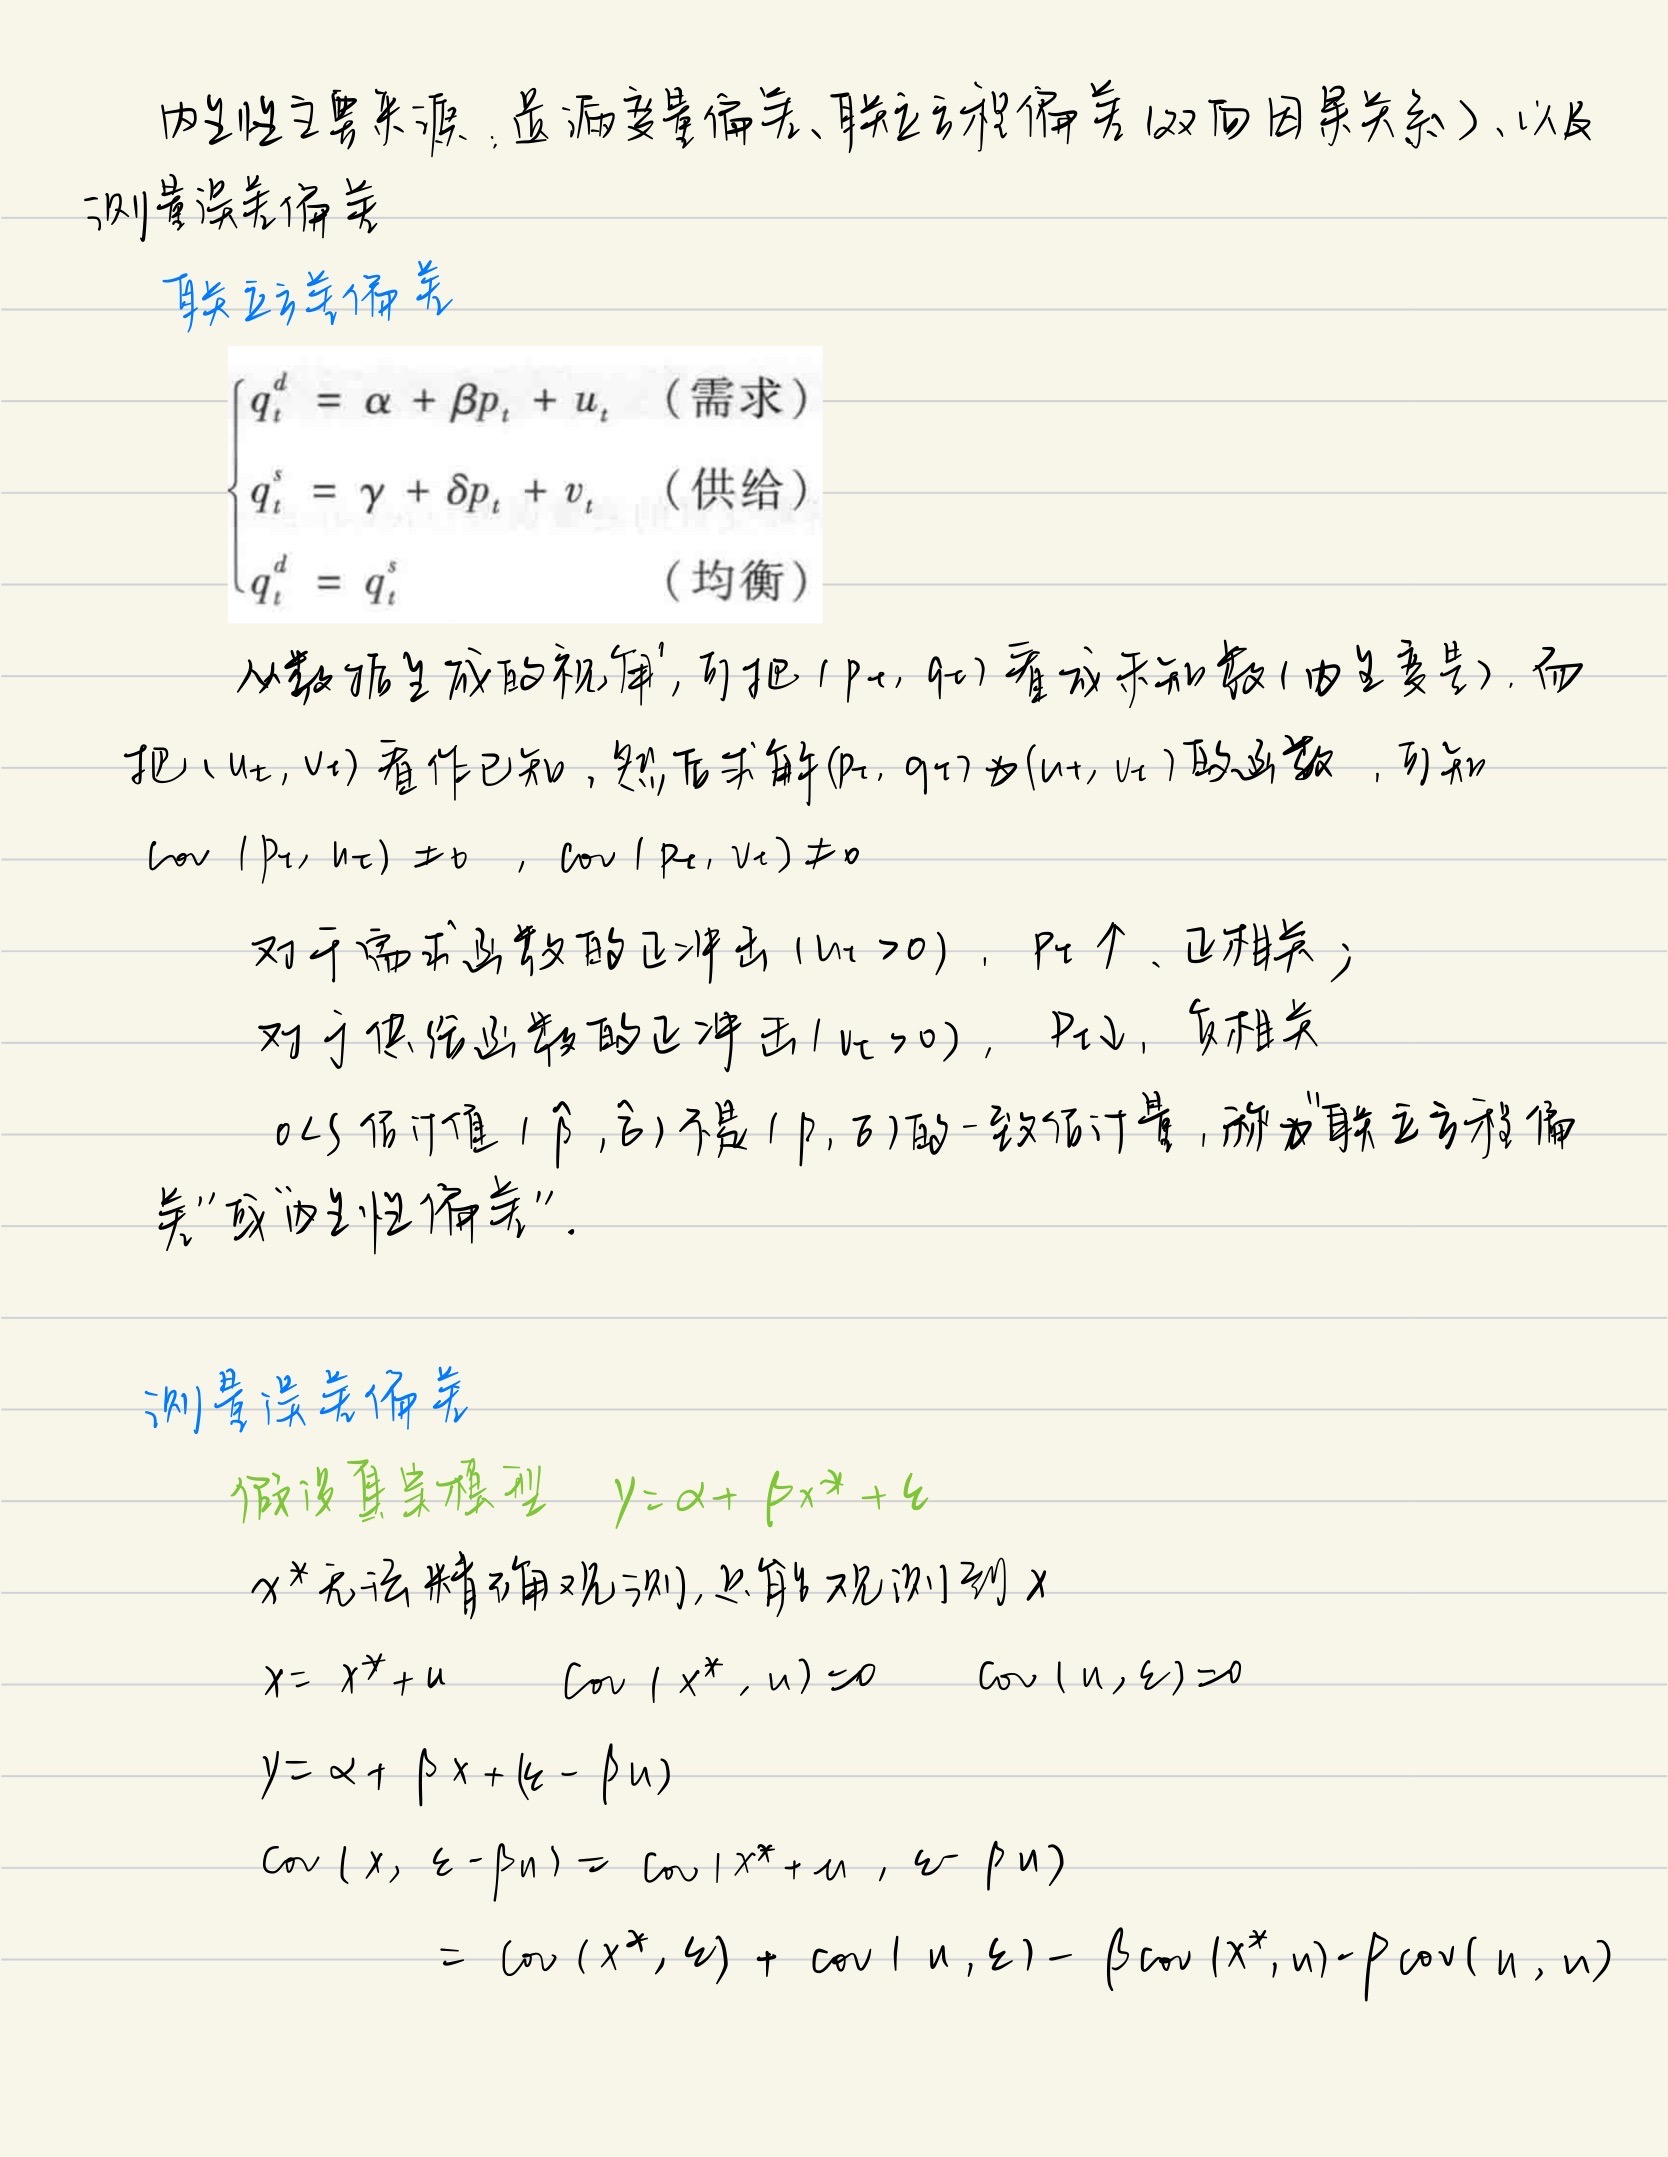 内生性主要来源：遗漏变量偏差、联立方程偏差（双向因果关系）、以及
测量误差偏差
联立方差偏差
q_t^d = α + βp_t + u_t （需求）
q_t^s = γ + δp_t + v_t （供给）
q_t^d = q_t^s （均衡）
从数据生成的视角，可把（p_t, q_t）看成未知数（内生变量），而
把（u_t, v_t）看作已知，然后求解(p_t, q_t)为(u_t, v_t)的函数，可知
Cov (p_t, u_t) ≠ 0 ， Cov (p_t, v_t) ≠ 0
对于需求函数的正冲击（u_t > 0）， P_t ↑、正相关；
对于供给函数的正冲击（v_t > 0）， P_t ↓，负相关
OLS 估计值（β̂, δ̂）不是（β, δ）的一致估计量，称为“联立方程偏
差”或“内生性偏差”.
测量误差偏差
假设真实模型 y = α + βx* + ε
x* 无法精确观测，只能观测到 x
x = x* + u Cov (x*, u) = 0 Cov (u, ε) = 0
y = α + βx + (ε - βu)
Cov (x, ε - βu) = Cov (x* + u, ε - βu)
= Cov (x*, ε) + cov (u, ε) - βcov (x*, u) - βcov (u, u)